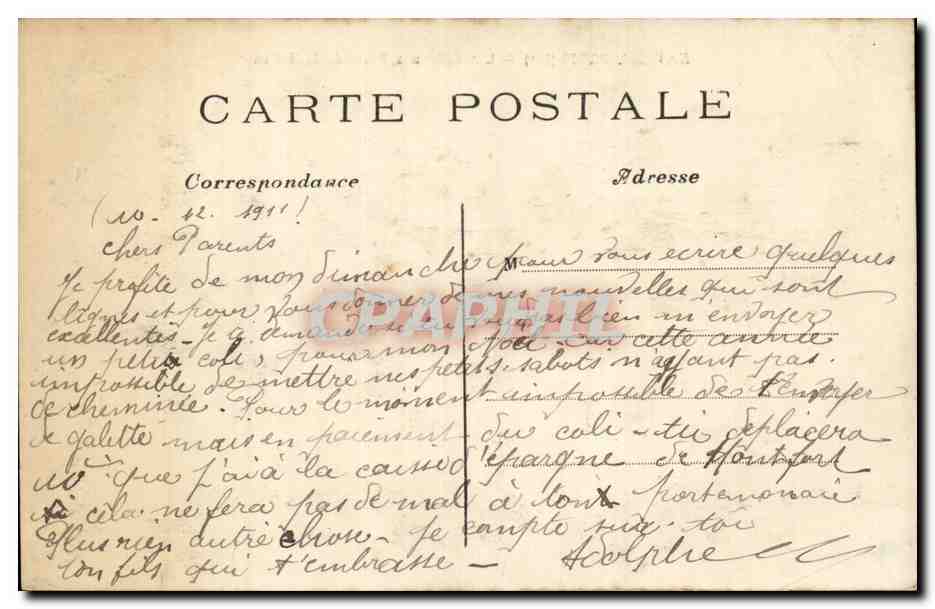 CARTE POSTALE
Correspondance
Adresse
(10. 12. 1911!
chers Parents
M
Je profite de mon dimanche pour vous ecrire quelques
lignes et pour vous donner de mes nouvelles qui sont
excellentes - Je demande si tu veux bien m'envoyer
un petit coli, pour mon Noel car cette année
impossible de mettre nes petets sabots n'ayant pas
de cheminée. Pour le moment impossible de t'envoyer
de galette mais en paiement du coli - tu deplacera
10 que j'ai à la caisse d'épargne de Montfort
cela ne fera pas de mal à ton portemonaie
Plus rien autre chose - Je compte sur toi
ton fils qui t'embrasse - Adolphe
CPAPHIL